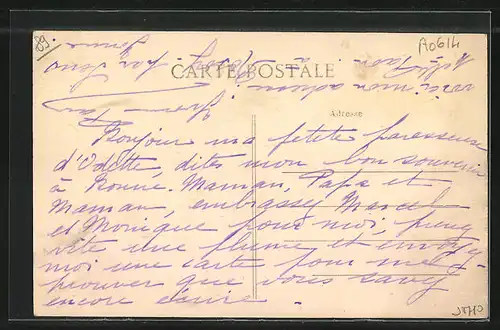 89
A0614
CARTE POSTALE
Adresse
voici mon adresse
Bonjour ma petite paresseuse
d'Odette, dites mon bon souvenir
à Bonne Maman, Papa et
Maman, embrassez Marcel
et Monique pour moi, prenez
vite une plume et envoyez
moi une carte pour me
prouver que vous savez
encore écrire.